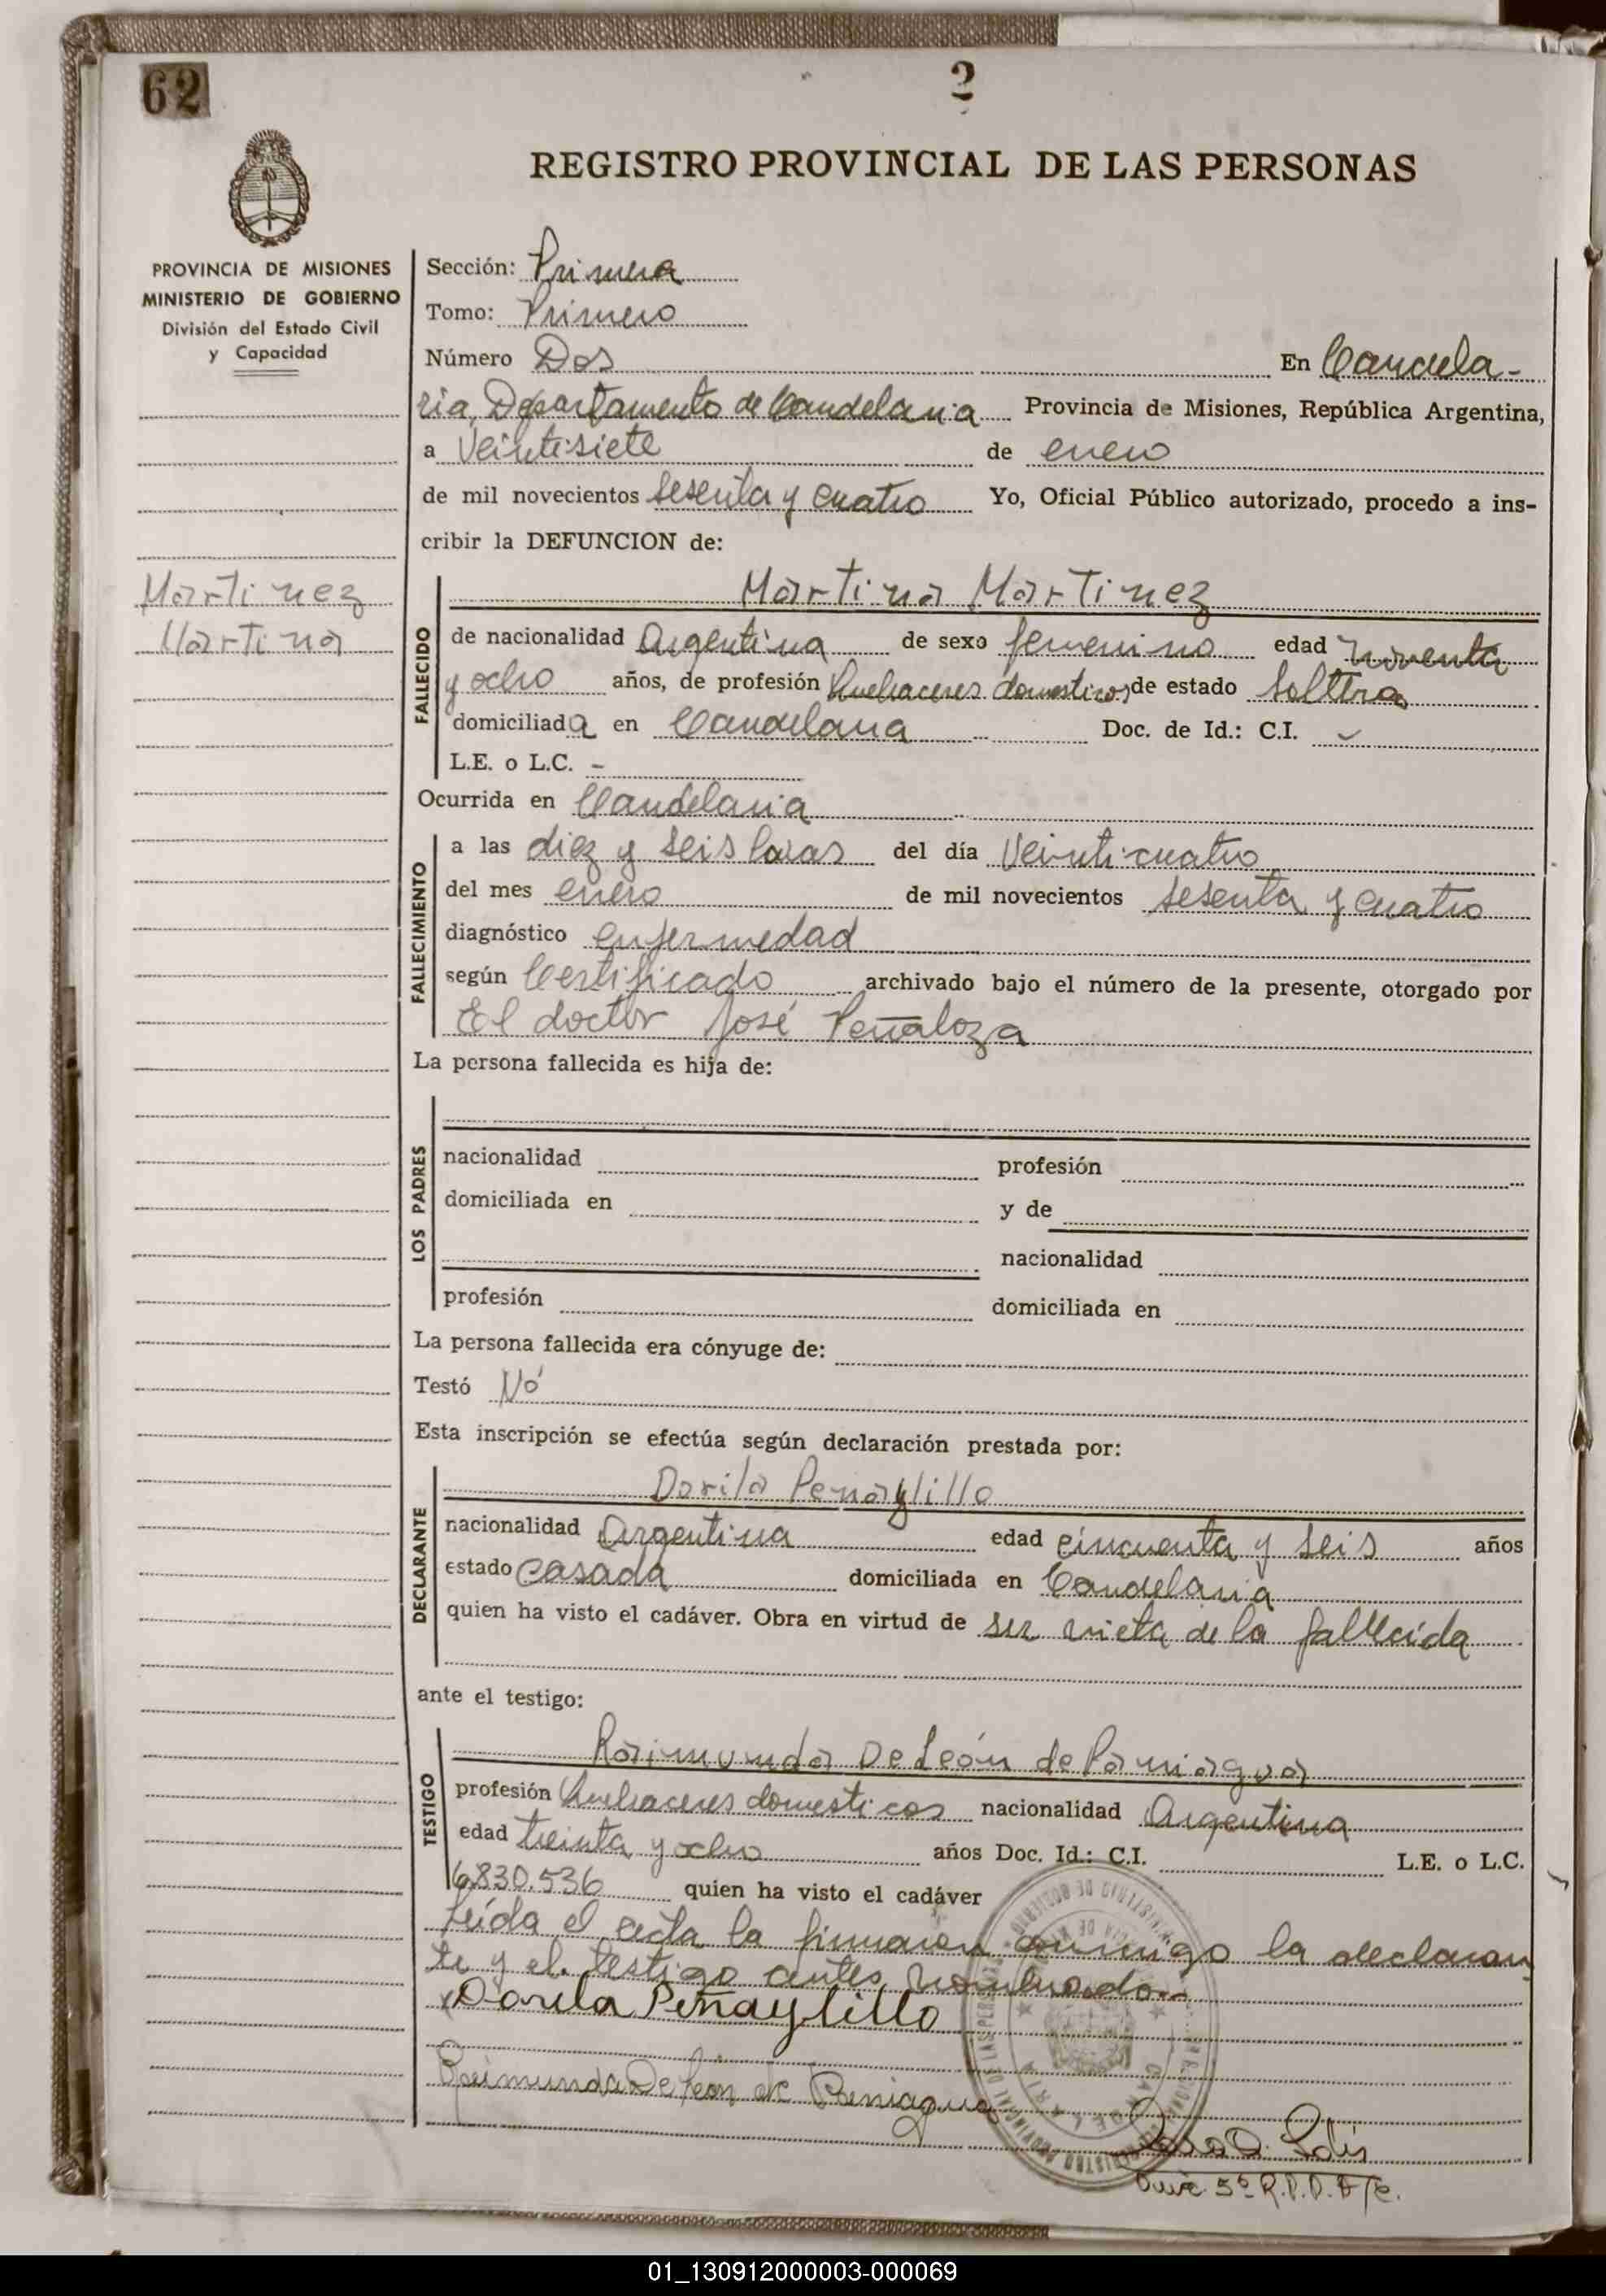 62
2
REGISTRO PROVINCIAL DE LAS PERSONAS
PROVINCIA DE MISIONES
MINISTERIO DE GOBIERNO
División del Estado Civil
y Capacidad
Sección: Primera
Tomo: Primero
Número Dos En Candela-
ria, Departamento de Candelaria Provincia de Misiones, República Argentina,
a Veintisiete de enero
de mil novecientos sesenta y cuatro Yo, Oficial Público autorizado, procedo a ins-
cribir la DEFUNCION de:
Martinez
Martina
FALLECIDO
Martina Martinez
de nacionalidad Argentina de sexo femenino edad noventa
y ocho años, de profesión Quehaceres domesticos de estado Soltera
domiciliada en Candelaria Doc. de Id.: C.I. -
L.E. o L.C. -
Ocurrida en Candelaria
FALLECIMIENTO
a las diez y seis horas del día Veinticuatro
del mes enero de mil novecientos sesenta y cuatro
diagnóstico enfermedad
según Certificado archivado bajo el número de la presente, otorgado por
El doctor José Peñaloza
La persona fallecida es hija de:
LOS PADRES
nacionalidad profesión
domiciliada en y de
nacionalidad
profesión domiciliada en
La persona fallecida era cónyuge de:
Testó Nó
Esta inscripción se efectúa según declaración prestada por:
DECLARANTE
Dorila Penaylillo
nacionalidad Argentina edad cincuenta y seis años
estado Casada domiciliada en Candelaria
quien ha visto el cadáver. Obra en virtud de ser nieta de la fallecida
ante el testigo:
TESTIGO
Raimunda De León de Paniagua
profesión Quehaceres domesticos nacionalidad Argentina
edad treinta y ocho años Doc. Id.: C.I. L.E. o L.C.
6.830.536 quien ha visto el cadáver
Leída el acta la firmaron conmigo la declaran
te y el testigo antes nombrado.-
Dorila Peñaylillo
Raimunda De León de Paniagua
Solis
01_130912000003-000069